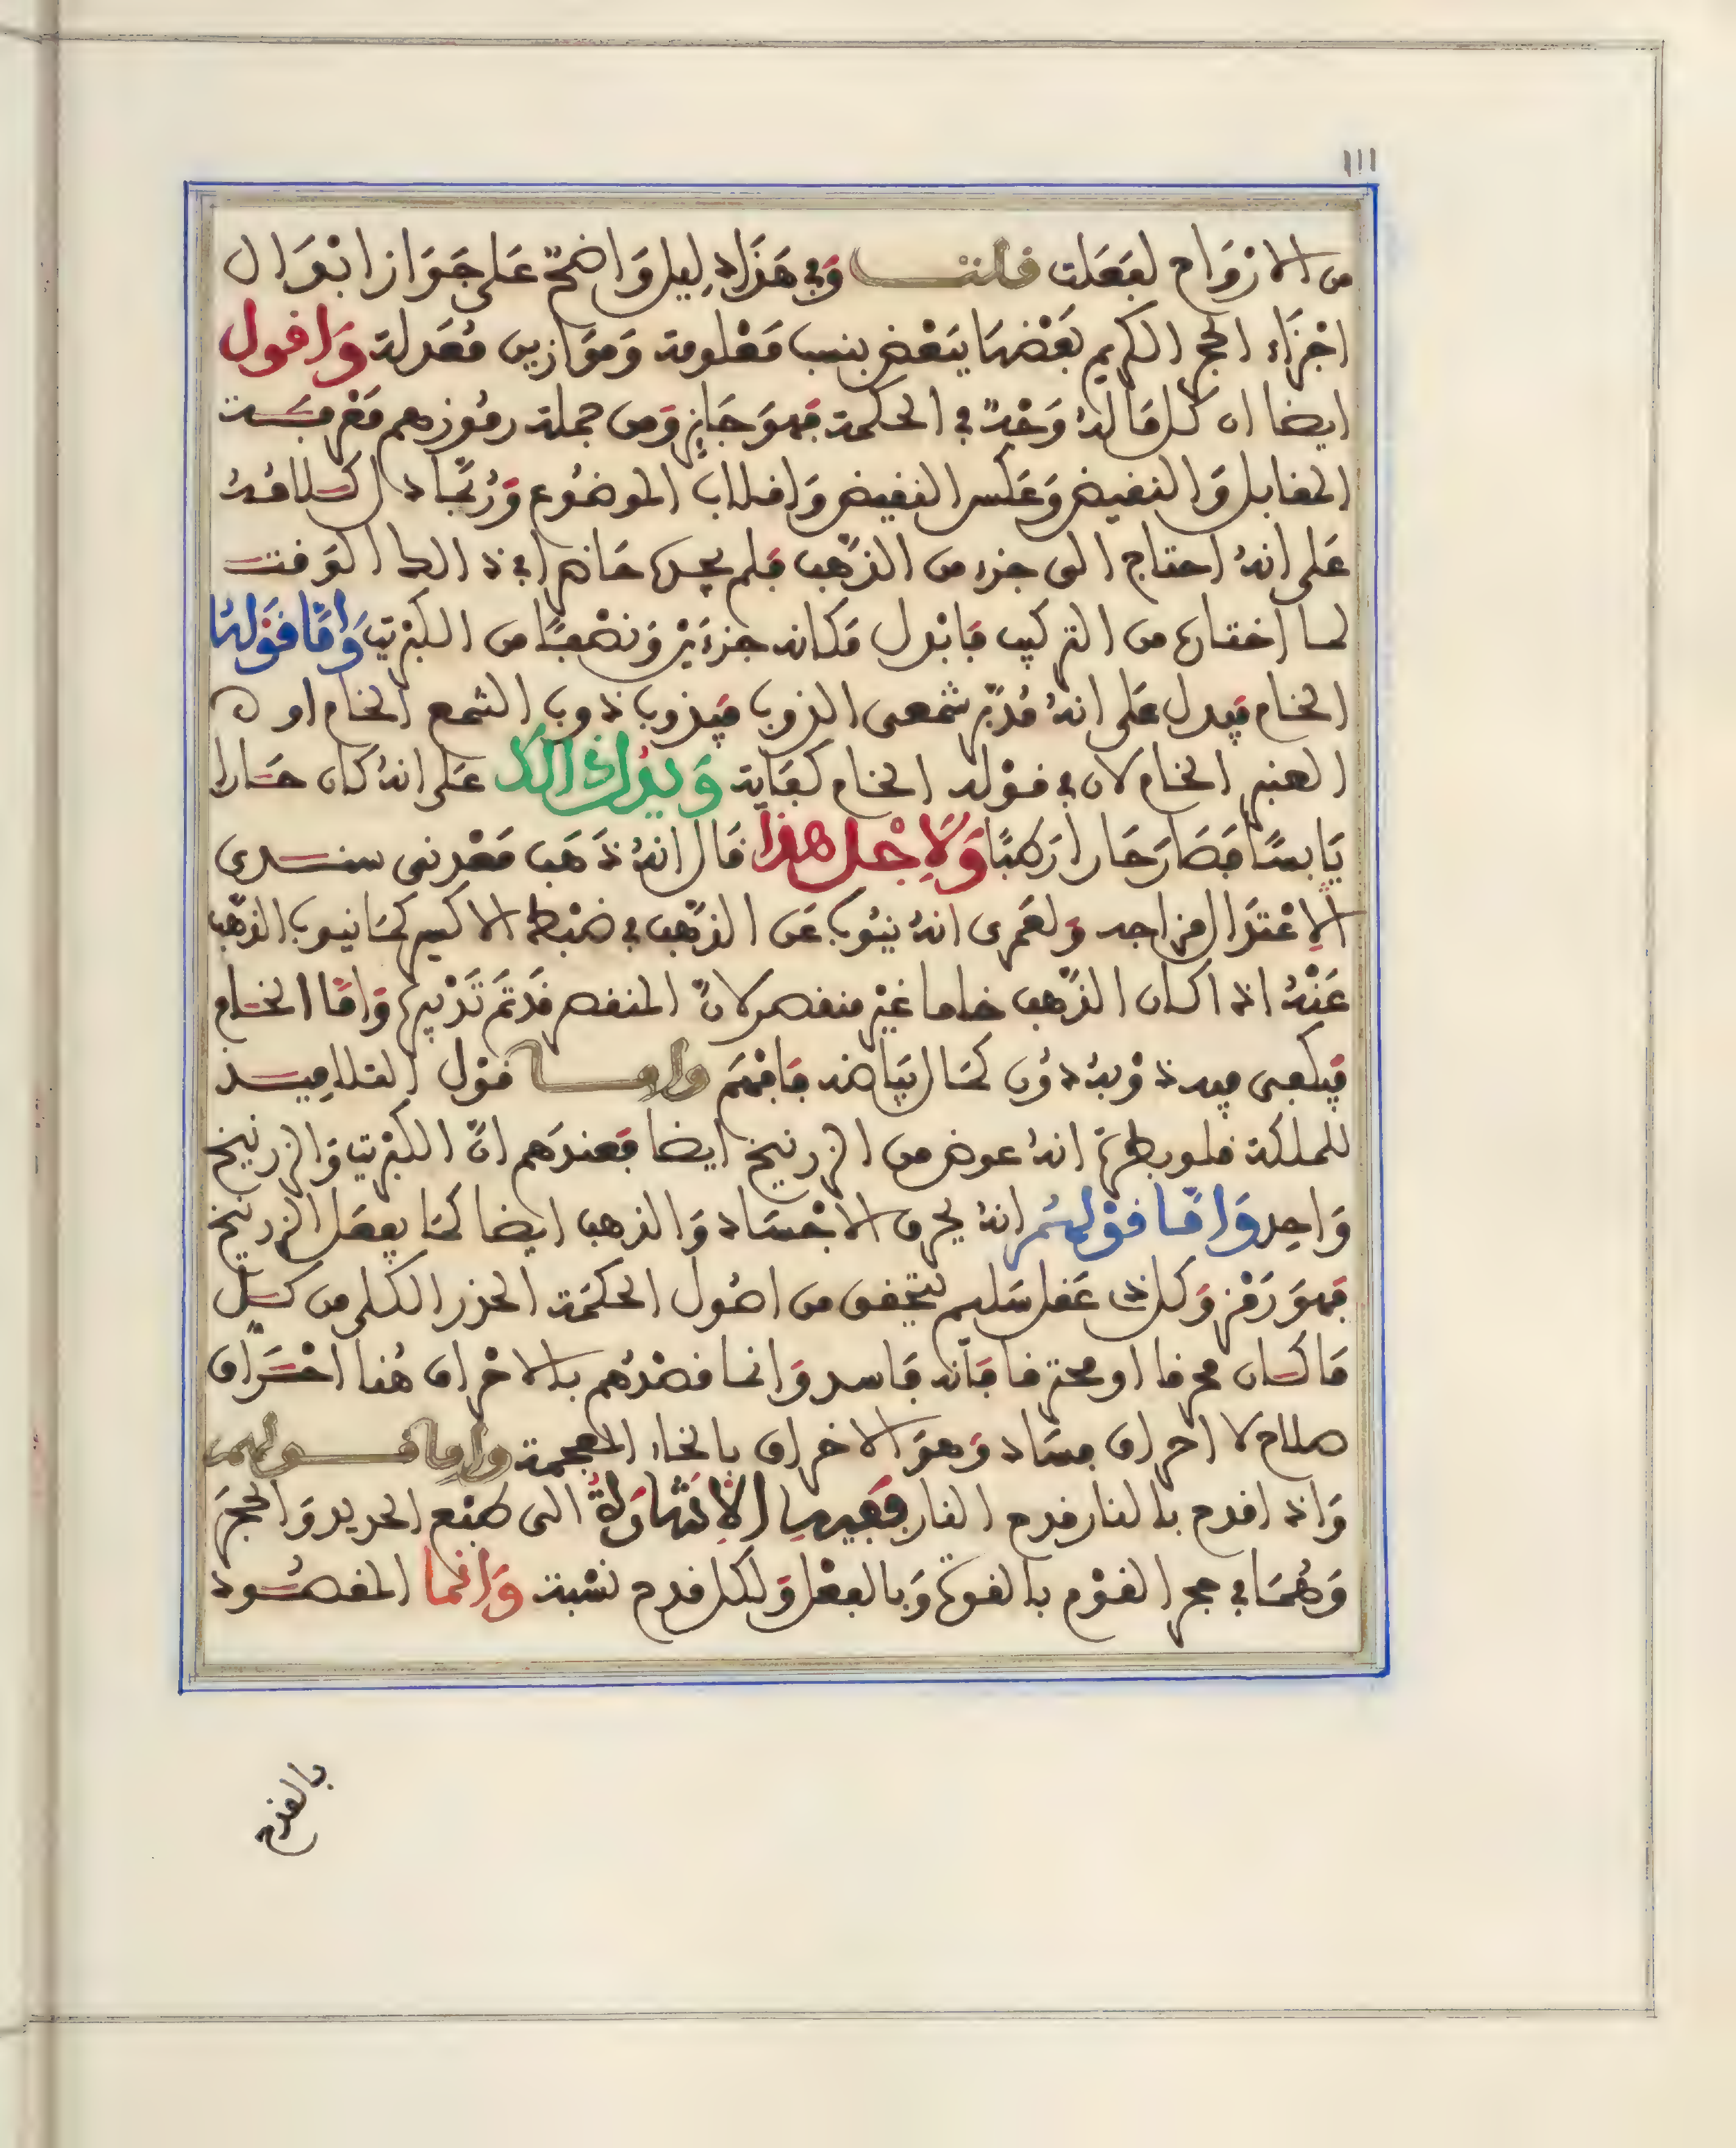 111
من الارواح لفعلت قلت وفي هذا دليل واضح على جواز ابدال
اجزاء الحجر الكريم بعضها ببعض بنسب معلومة وموازين معدلة واقول
ايضا ان كل ما له وجه في الحكمة فهو جايز ومن جملة رموزهم معرفة
المقابل والنقيض وعكس النقيض واقلاب الموضوع وربما دل كلامه
على انه احتاج الى جزء من الذهب فلم يجده حاضرا في ذالك الوقت
لما اختاره من التركيب فابدل مكانه جزءين ونصفا من الكبريت واما قولها
الخام فيدل على انه مدبر شمعي الذوب فيذوب ذوب الشمع الخام او
العنبر الخام لان في قوله الخام كفاية ويدل ذالك على انه كان حارا
يابسا فصار حارا رطبا ولاجل هذا قال انه ذهب معدني سندي
الاعتدال مزاجه ولعمري انه ينوب عن الذهب في ضبط الاكسير كما ينوب الذهب
عنه اذا كان الذهب خاما غير منقص لان المنقص قد تم تدبيره واما الخام
فيكفي فيه ذوبه دون كمال بياضه فافهم واما قول التلاميذ
للملكة فلو بطرة انه عوض من الزرنيخ ايضا فعندهم ان الكبريت والزرنيخ
واحد واما قولهم انه يحرق الاجساد والذهب ايضا كما يفعل الزرنيخ
فهو رمز وكل ذي عقل سليم يتحقق من اصول الحكمة الحذر الكلي من كل
ما كان محرقا او محترقا فانه فاسد وانما قصدهم بالاحراق هنا احتراق
صلاح لا احراق فساد وهو الاخراق بالخاء المعجمة واما قولهم
واذا قدح بالنار قدح النار ففيه الاشارة الى طبع الحديد والحجر
وهما في حجر القوم بالقوة وبالفعل ولكل قدح نسبة وانما المقصود
بالقدح